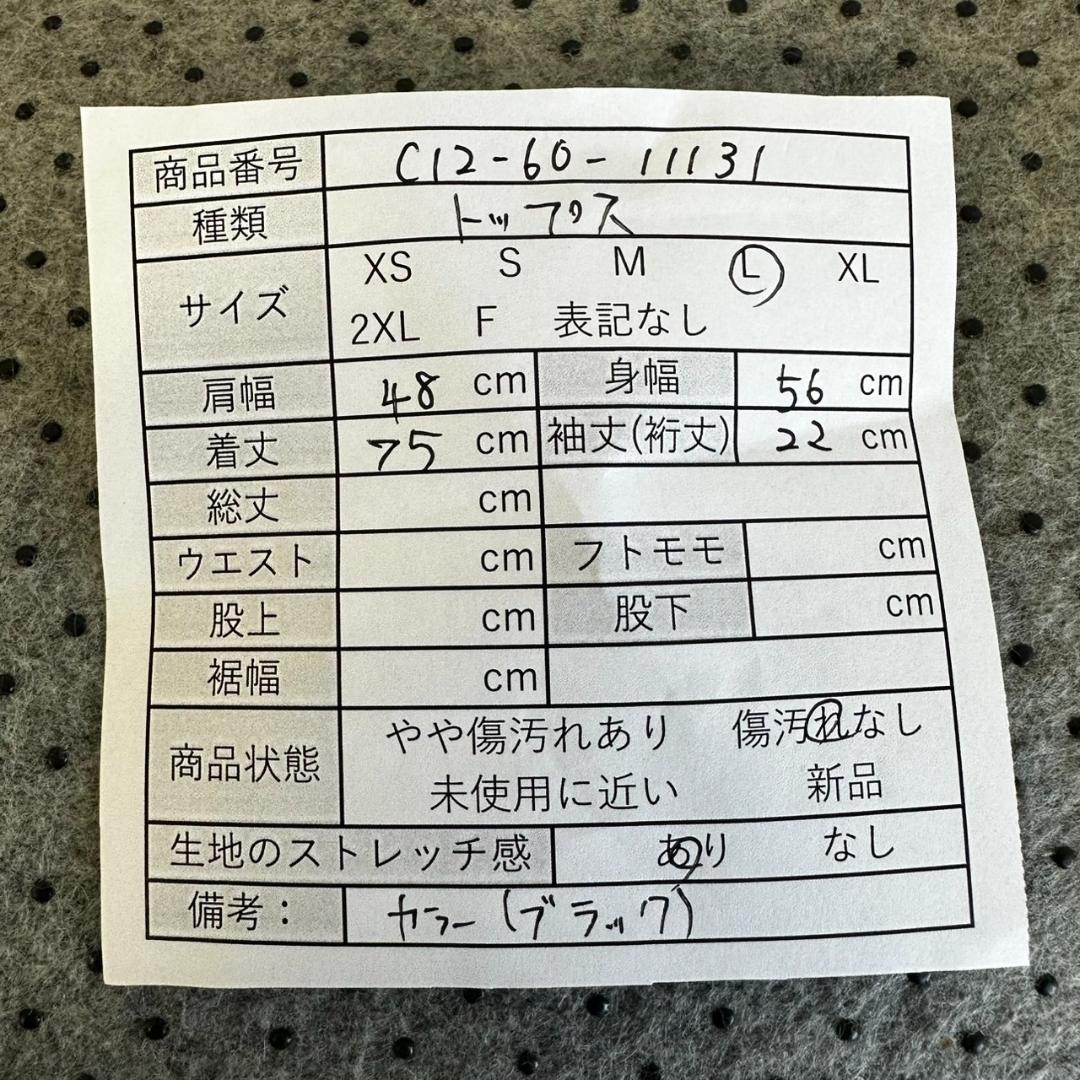 商品番号 C12-60-11131
種類 トップス
サイズ XS S M L XL
2XL F 表記なし
肩幅 48 cm 身幅 56 cm
着丈 75 cm 袖丈(裄丈) 22 cm
総丈 cm
ウエスト cm フトモモ cm
股上 cm 股下 cm
裾幅 cm
商品状態 やや傷汚れあり 傷汚れなし
未使用に近い 新品
生地のストレッチ感 あり なし
備考： カラー(ブラック)